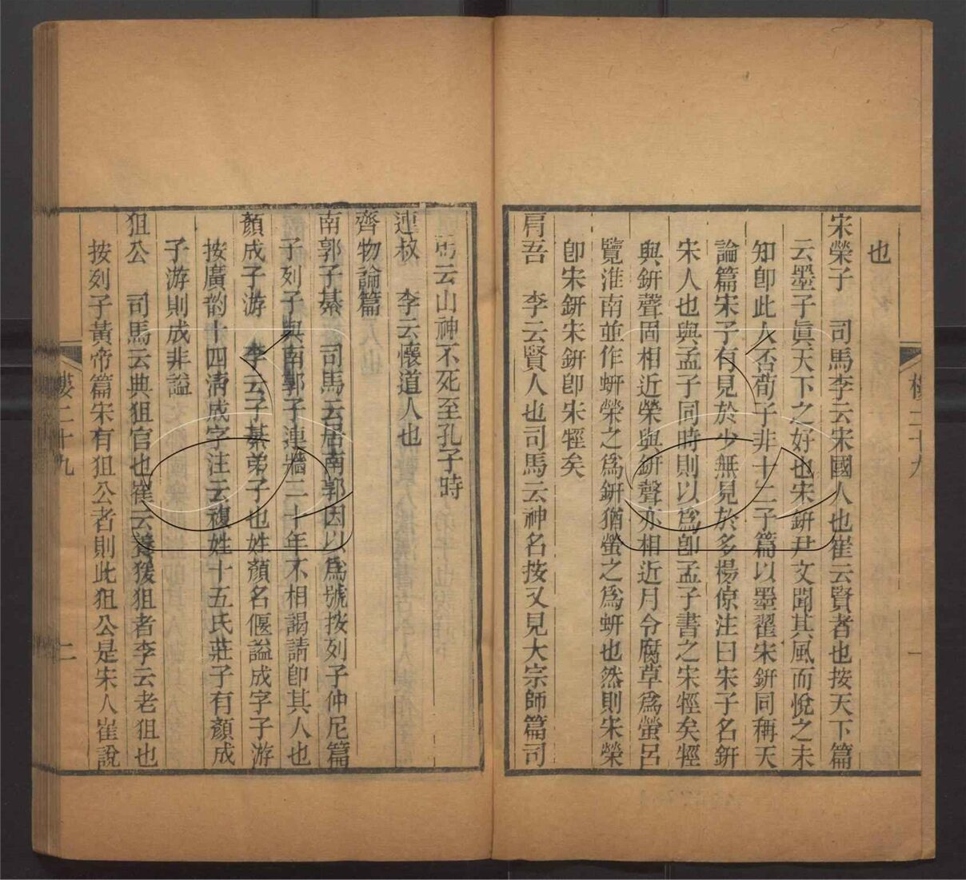 也
宋榮子　司馬李云宋國人也崔云賢者也按天下篇
云墨子眞天下之好也宋鈃尹文聞其風而悅之未
知卽此人否荀子非十二子篇以墨翟宋鈃同稱天
論篇宋子有見於少無見於多楊倞注曰宋子名鈃
宋人也與孟子同時則以爲卽孟子書之宋牼矣牼
與鈃聲固相近榮與鈃聲亦相近月令腐草爲螢呂
覽淮南並作蚈榮之爲鈃猶螢之爲蚈也然則宋榮
卽宋鈃宋鈃卽宋牼矣
肩吾　李云賢人也司馬云神名按又見大宗師篇司
馬云山神不死至孔子時
連叔　李云懷道人也
齊物論篇
南郭子綦　司馬云居南郭因以爲號按列子仲尼篇
子列子與南郭子連牆二十年不相謁請卽其人也
顏成子游　李云子綦弟子也姓顏名偃謚成字子游
按廣韵十四淸成字注云複姓十五氏莊子有顏成
子游則成非謚
狙公　司馬云典狙官也崔云養猨狙者李云老狙也
按列子黃帝篇宋有狙公者則此狙公是宋人崔說
樓二十九
二